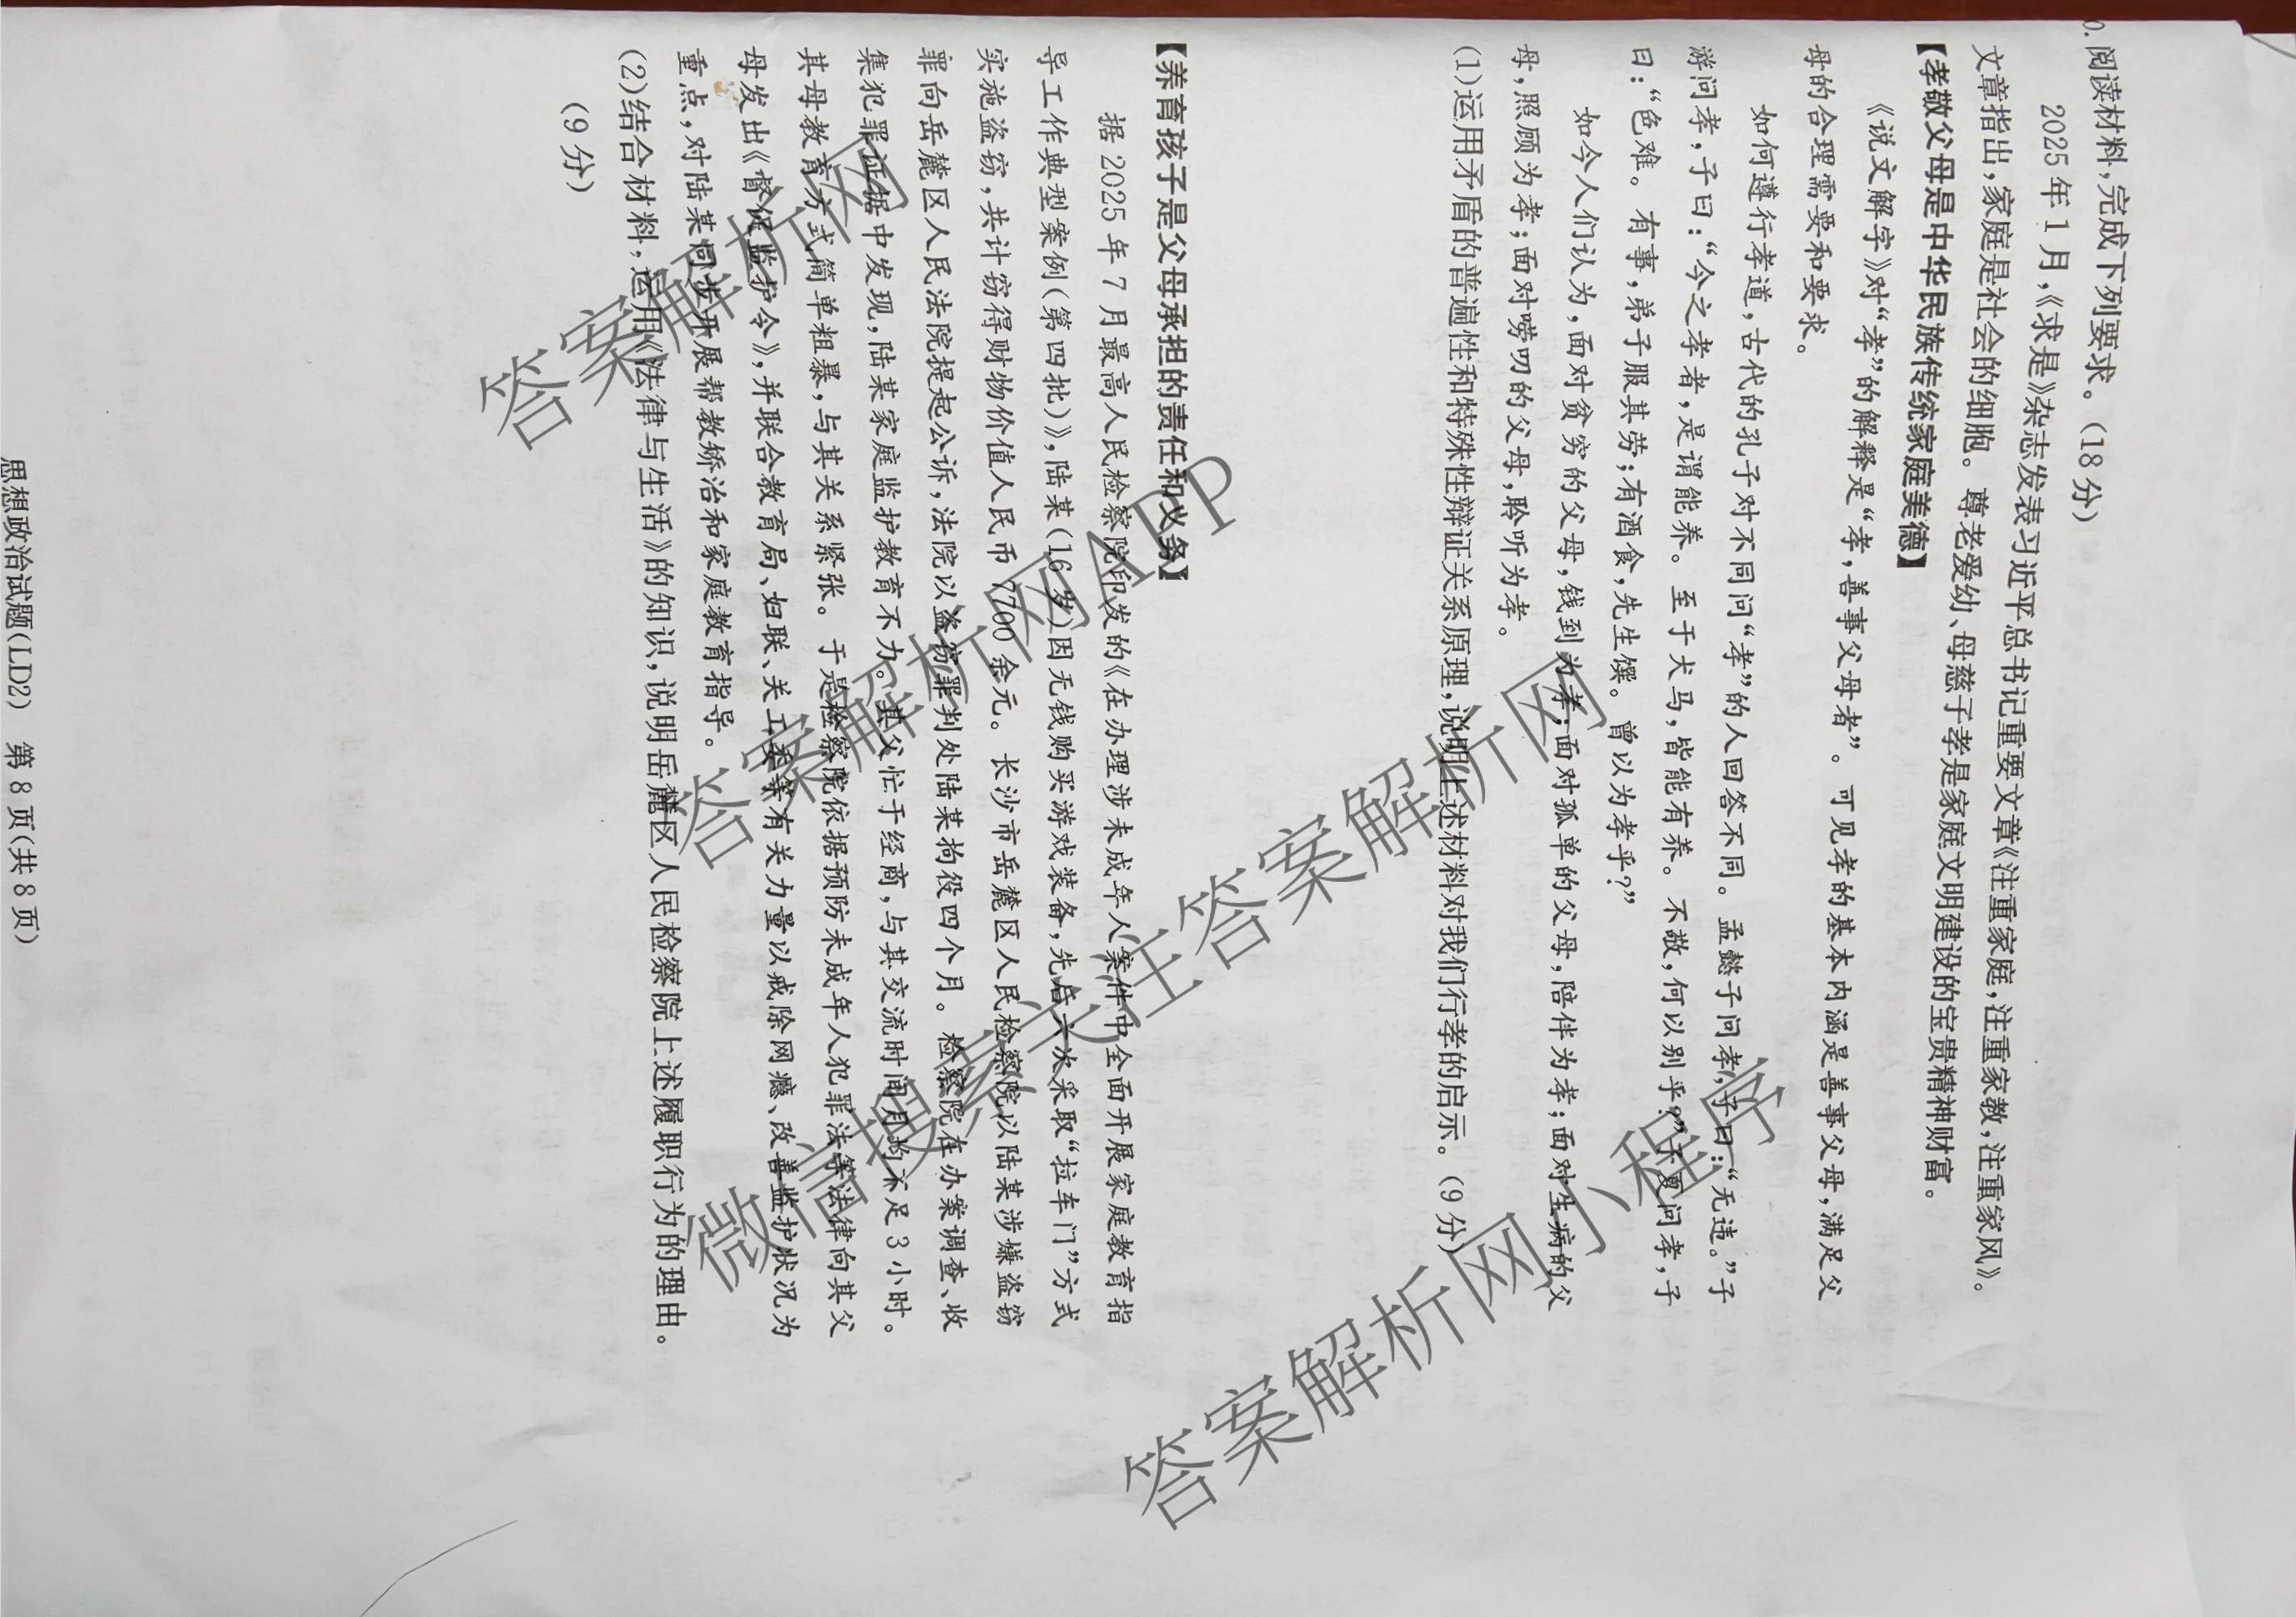 0. 阅读材料,完成下列要求。(18分)
2025年1月,《求是》杂志发表习近平总书记重要文章《注重家庭,注重家教,注重家风》。
文章指出,家庭是社会的细胞。尊老爱幼、母慈子孝是家庭文明建设的宝贵精神财富。
【孝敬父母是中华民族传统家庭美德】
《说文解字》对“孝”的解释是“孝,善事父母者”。可见孝的基本内涵是善事父母,满足父
母的合理需要和要求。
如何遵行孝道,古代的孔子对不同问“孝”的人回答不同。孟懿子问孝,子曰:“无违。”子
游问孝,子曰:“今之孝者,是谓能养。至于犬马,皆能有养。不敬,何以别乎?”子夏问孝,子
曰:“色难。有事,弟子服其劳;有酒食,先生馔。曾以为孝乎?”
如今人们认为,面对贫穷的父母,钱到为孝;面对孤单的父母,陪伴为孝;面对生病的父
母,照顾为孝;面对唠叨的父母,聆听为孝。
(1)运用矛盾的普遍性和特殊性辩证关系原理,说明上述材料对我们行孝的启示。(9分)
【养育孩子是父母承担的责任和义务】
据2025年7月最高人民检察院印发的《在办理涉未成年人案件中全面开展家庭教育指
导工作典型案例(第四批)》,陆某(16岁)因无钱购买游戏装备,先后六次采取“拉车门”方式
实施盗窃,共计窃得财物价值人民币7700余元。长沙市岳麓区人民检察院以陆某涉嫌盗窃
罪向岳麓区人民法院提起公诉,法院以盗窃罪判处陆某拘役四个月。检察院在办案调查、收
集犯罪证据中发现,陆某家庭监护教育不力。其父忙于经商,与其交流时间月均不足3小时。
其母教育方式简单粗暴,与其关系紧张。于是检察院依据预防未成年人犯罪法等法律向其父
母发出《督促监护令》,并联合教育局、妇联、关工委等有关力量以戒除网瘾、改善监护状况为
重点,对陆某同步开展帮教矫治和家庭教育指导。
(2)结合材料,运用《法律与生活》的知识,说明岳麓区人民检察院上述履职行为的理由。
(9分)
思想政治试题(LD2) 第8页(共8页)
答案解析网
答案解析网APP
微信搜索关注答案解析网
答案解析网小程序